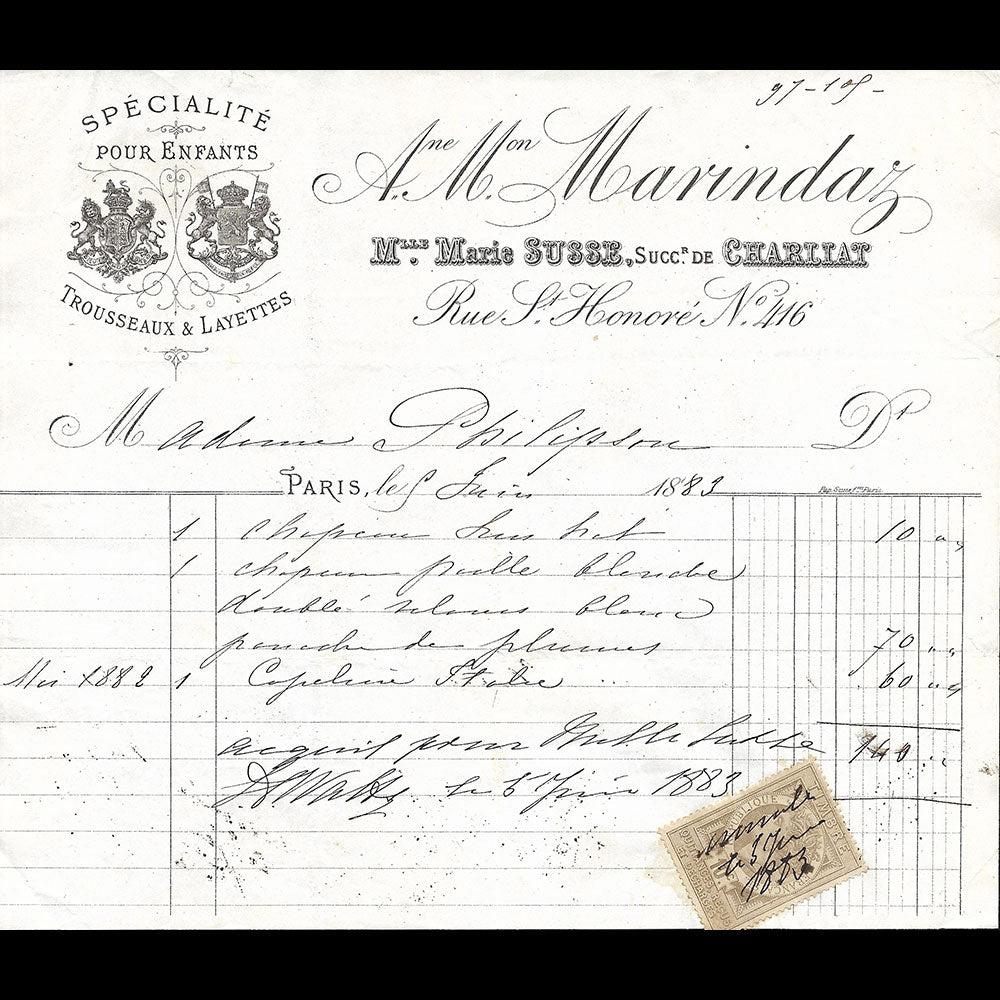 97-105-
SPÉCIALITÉ
POUR ENFANTS
TROUSSEAUX & LAYETTES
A.ne M.on Marindaz
MLLE Marie SUSSE, SUCC.R DE CHARLIAT
Rue St. Honoré No. 416
Madame Philipson Dt
PARIS, le 5 Juin 1883
Pap. Susse Fres Paris
1 chapeau 10 " "
1 chapeau paille blanche
doublé velours blanc
panache de plumes 70 " "
Mai 1882 1 Capeline Italie 60 " "
140 " "
acquit pour Melle Susse
le 5 Juin 1883
RÉPUBLIQUE FRANÇAISE
le 5 Juin
1883